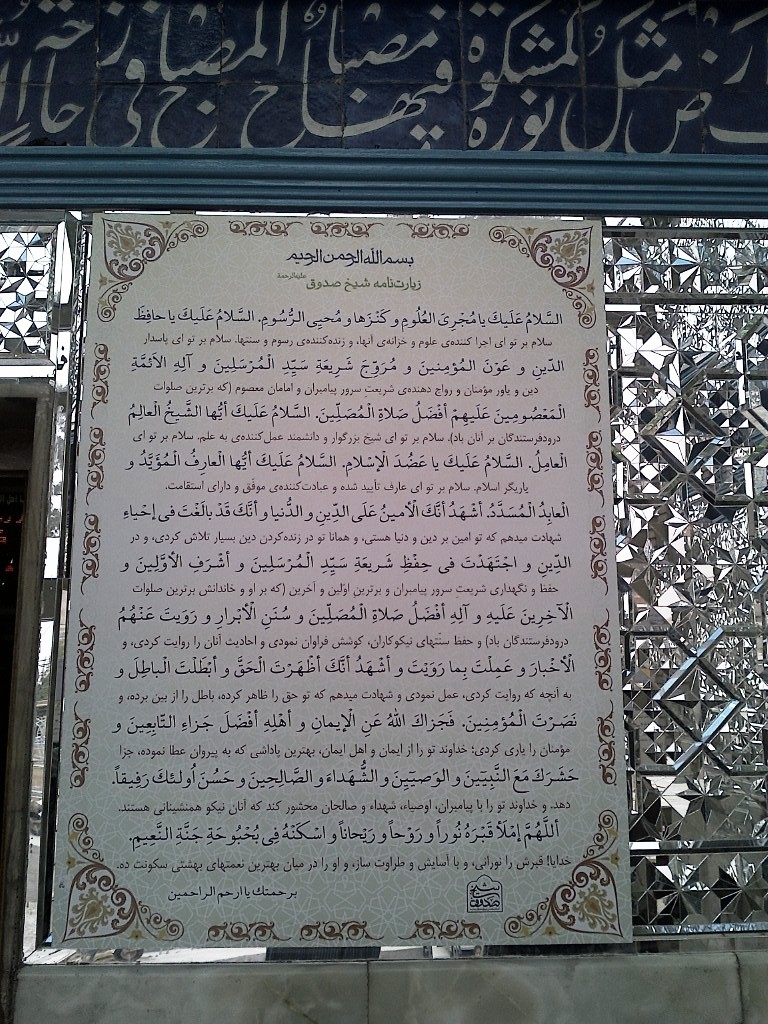 ارض مثل نوره كمشكوة فيها مصباح المصباح في زجاجة
بسم الله الرحمن الرحیم
زیارت‌نامه شیخ صدوق علیه‌الرحمة
السَّلامُ عَلَیكَ یا مُجْرِیَ العُلُومِ و كَنْزَها و مُحیِی الرُّسُومِ. السَّلامُ عَلَیكَ یا حافِظَ
سلام بر تو ای اجرا کننده‌ی علوم و خزانه‌ی آنها، و زنده‌کننده‌ی رسوم و سنتها. سلام بر تو ای پاسدار
الدِّینِ و عَوْنَ المُؤمِنینَ و مُرَوِّجَ شَریعَةِ سَیِّدِ الْمُرْسَلِینَ و آلِهِ الاَئمَّةِ
دین و یاور مؤمنان و رواج دهنده‌ی شریعت سرور پیامبران و امامان معصوم (که برترین صلوات
الْمَعْصُومِینَ عَلَیهِمْ أَفْضَلُ صَلاةِ الْمُصَلِّینَ. السَّلامُ عَلَیكَ أَیُّها الشَّیخُ العالِمُ
درودفرستندگان بر آنان باد). سلام بر تو ای شیخ بزرگوار و دانشمند عمل‌کننده‌ی به علم، سلام بر تو ای
العامِلُ. السَّلامُ عَلَیكَ یا عَضُدَ الْاِسْلامِ. السَّلامُ عَلَیكَ أَیُّها العارِفُ الْمُؤَیَّدُ و
یاریگر اسلام. سلام بر تو ای عارف تأیید شده و عبادت‌کننده‌ی موفّق و دارای استقامت.
العابِدُ الْمُسَدَّدُ. أَشْهَدُ أَنَّكَ الْأَمینُ عَلَی الدِّینِ و الدُّنیا و أَنَّكَ قَدْ بالَغْتَ فی إحْیاءِ
شهادت میدهم که تو امین بر دین و دنیا هستی، و همانا تو در زنده‌کردن دین بسیار تلاش کردی، و در
الدِّینِ و اجْتَهَدْتَ فی حِفْظِ شَریعَةِ سَیِّدِ الْمُرْسَلِینَ و أَشْرَفِ الْأَوَّلِینَ و
حفظ و نگهداری شریعتِ سرورِ پیامبران و برترینِ اوّلین و آخرین (که بر او و خاندانش برترین صلوات
الْآخِرینَ عَلَیهِ و آلِهِ أَفْضَلُ صَلاةِ الْمُصَلِّینَ و سُنَنِ الْاَبْرارِ و رَوَیتَ عَنْهُمُ
درودفرستندگان باد) و حفظ سنّتهای نیکوکاران، کوشش فراوان نمودی و احادیث آنان را روایت کردی، و
الْأَخْبارَ و عَمِلْتَ بِما رَوَیْتَ و أَشْهَدُ أَنَّكَ أَظْهَرْتَ الْحَقَّ و أَبْطَلْتَ الْباطِلَ و
به آنچه که روایت کردی، عمل نمودی و شهادت میدهم که تو حق را ظاهر کرده، باطل را از بین برده، و
نَصَرْتَ الْمُؤْمِنِینَ. فَجَزاكَ اللهُ عَنِ الْإیمانِ و أَهْلِهِ أَفْضَلَ جَزاءِ التَّابِعِینَ و
مؤمنان را یاری کردی؛ خداوند تو را از ایمان و اهل ایمان، بهترین پاداشی که به پیروان عطا نموده، جزا
حَشَرَكَ مَعَ النَّبِیّینَ و الوَصِیّینَ و الشُّهَداءَ و الصَّالِحِینَ و حَسُنَ أُولـئكَ رَفِیقاً.
دهد. و خداوند تو را با پیامبران، اوصیاء، شهداء و صالحان محشور کند که آنان نیکو همنشینانی هستند.
أللَّهُمَّ إمْلَأْ قَبْرَهُ نُوراً و رَوْحاً و رَیْحاناً و اسْكَنْهُ فِی بُحْبُوحَةِ جَنَّةِ النَّعِیمِ.
خدایا! قبرش را نورانی، و با آسایش و طراوت ساز، و او را در میان بهترین نعمتهای بهشتی سکونت ده.
برحمتك یا ارحم الراحمین
شیخ صدوق